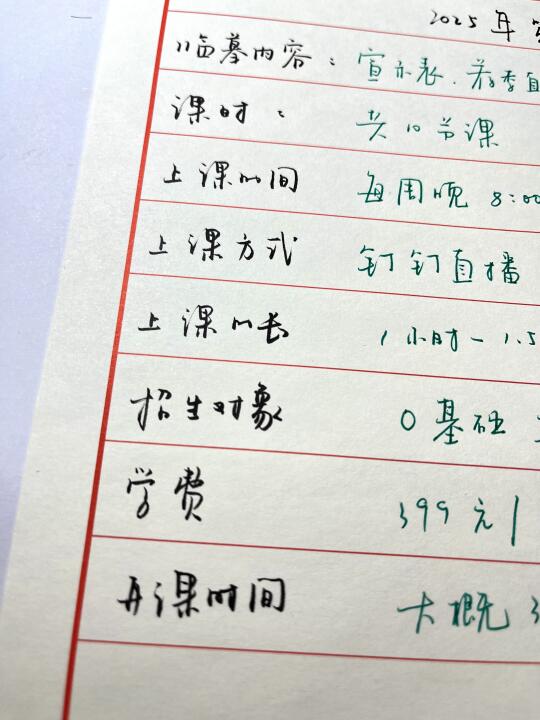 2025年
临摹内容：宣示表、荐季直
课时：共10节课
上课时间 每周晚8:00
上课方式 钉钉直播
上课时长 1小时-1.5
招生对象 0基础
学费 399元/
开课时间 大概3